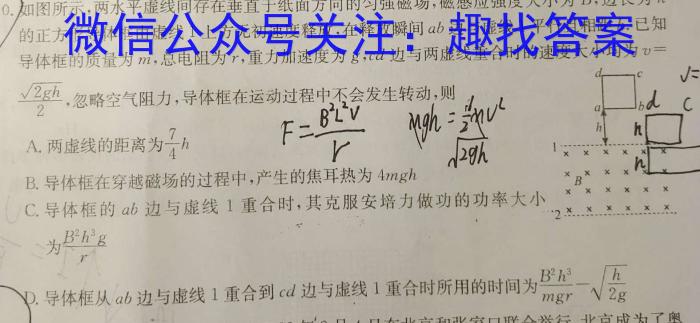 0.如图所示,两水平虚线间存在垂直于纸面方向的匀强磁场,磁感应强度大小为B,边长为h
的正方
微信公众号关注:趣找答案
导体框的质量为m,总电阻为r,重力加速度为g,cd边与两虚线重合时的速度大小均为v=
√2gh/2,忽略空气阻力,导体框在运动过程中不会发生转动,则
F=B²L²V/r
mgh=1/2mv²
√2gh
A.两虚线的距离为7/4h
B.导体框在穿越磁场的过程中,产生的焦耳热为4mgh
C.导体框的ab边与虚线1重合时,其克服安培力做功的功率大小
为B²h³g/r
D.导体框从ab边与虚线1重合到cd边与虚线1重合时所用的时间为B²h³/mgr-√h/2g
d c
a b
h
1
B
2
d C
h
h
V=